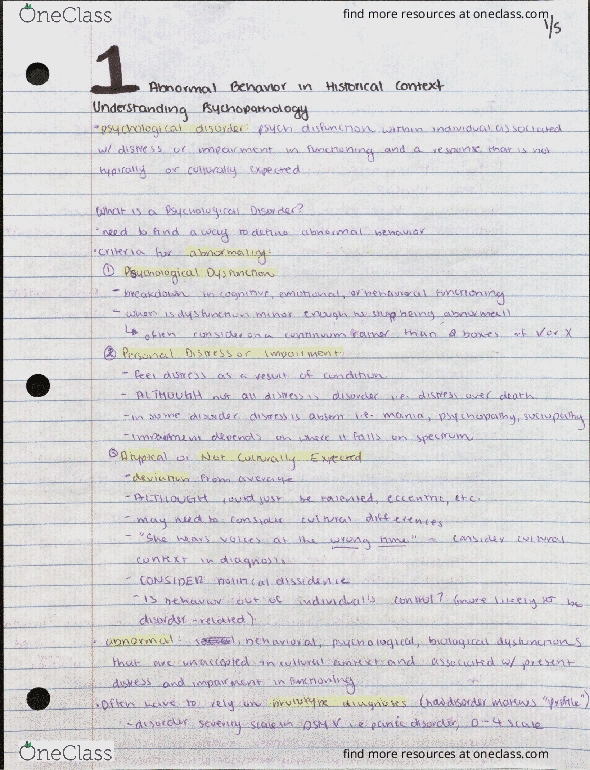 OneClass find more resources at oneclass.com
1/5
1 Abnormal Behavior in Historical Context
Understanding Psychopathology
• psychological disorder: psych disfunction within individual associated
w/ distress or impairment in functioning and a response that is not
typically or culturally expected
What is a Psychological Disorder?
• need to find a way to define abnormal behavior
• criteria for abnormality:
① Psychological Dysfunction
- breakdown in cognitive, emotional, or behavioral functioning
- when is dysfunction minor enough to stop being abnormal?
↳ often consider on a continuum rather than 2 boxes of ✓ or X
② Personal Distress or Impairment
- feel distress as a result of condition
- ALTHOUGH not all distress is disorder i.e. distress over death
- in some disorder distress is absent i.e. mania, psychopathy, sociopathy
- impairment depends on where it falls on spectrum
③ Atypical or Not Culturally Expected
- deviation from average
- ALTHOUGH could just be talented, eccentric, etc.
- may need to consider cultural differences
- "She hears voices at the wrong time" = consider cultural
context in diagnosis
- CONSIDER political dissidence
- Is behavior out of individual's control? (more likely to be
disorder-related)
• abnormal: behavioral, psychological, biological dysfunctions
that are unaccepted in cultural context and associated w/ present
distress and impairment in functioning
• Often have to rely on prototype diagnoses (how disorder matches "profile")
- disorder severity scale in DSM V i.e panic disorder, 0-4 scale
OneClass find more resources at oneclass.com